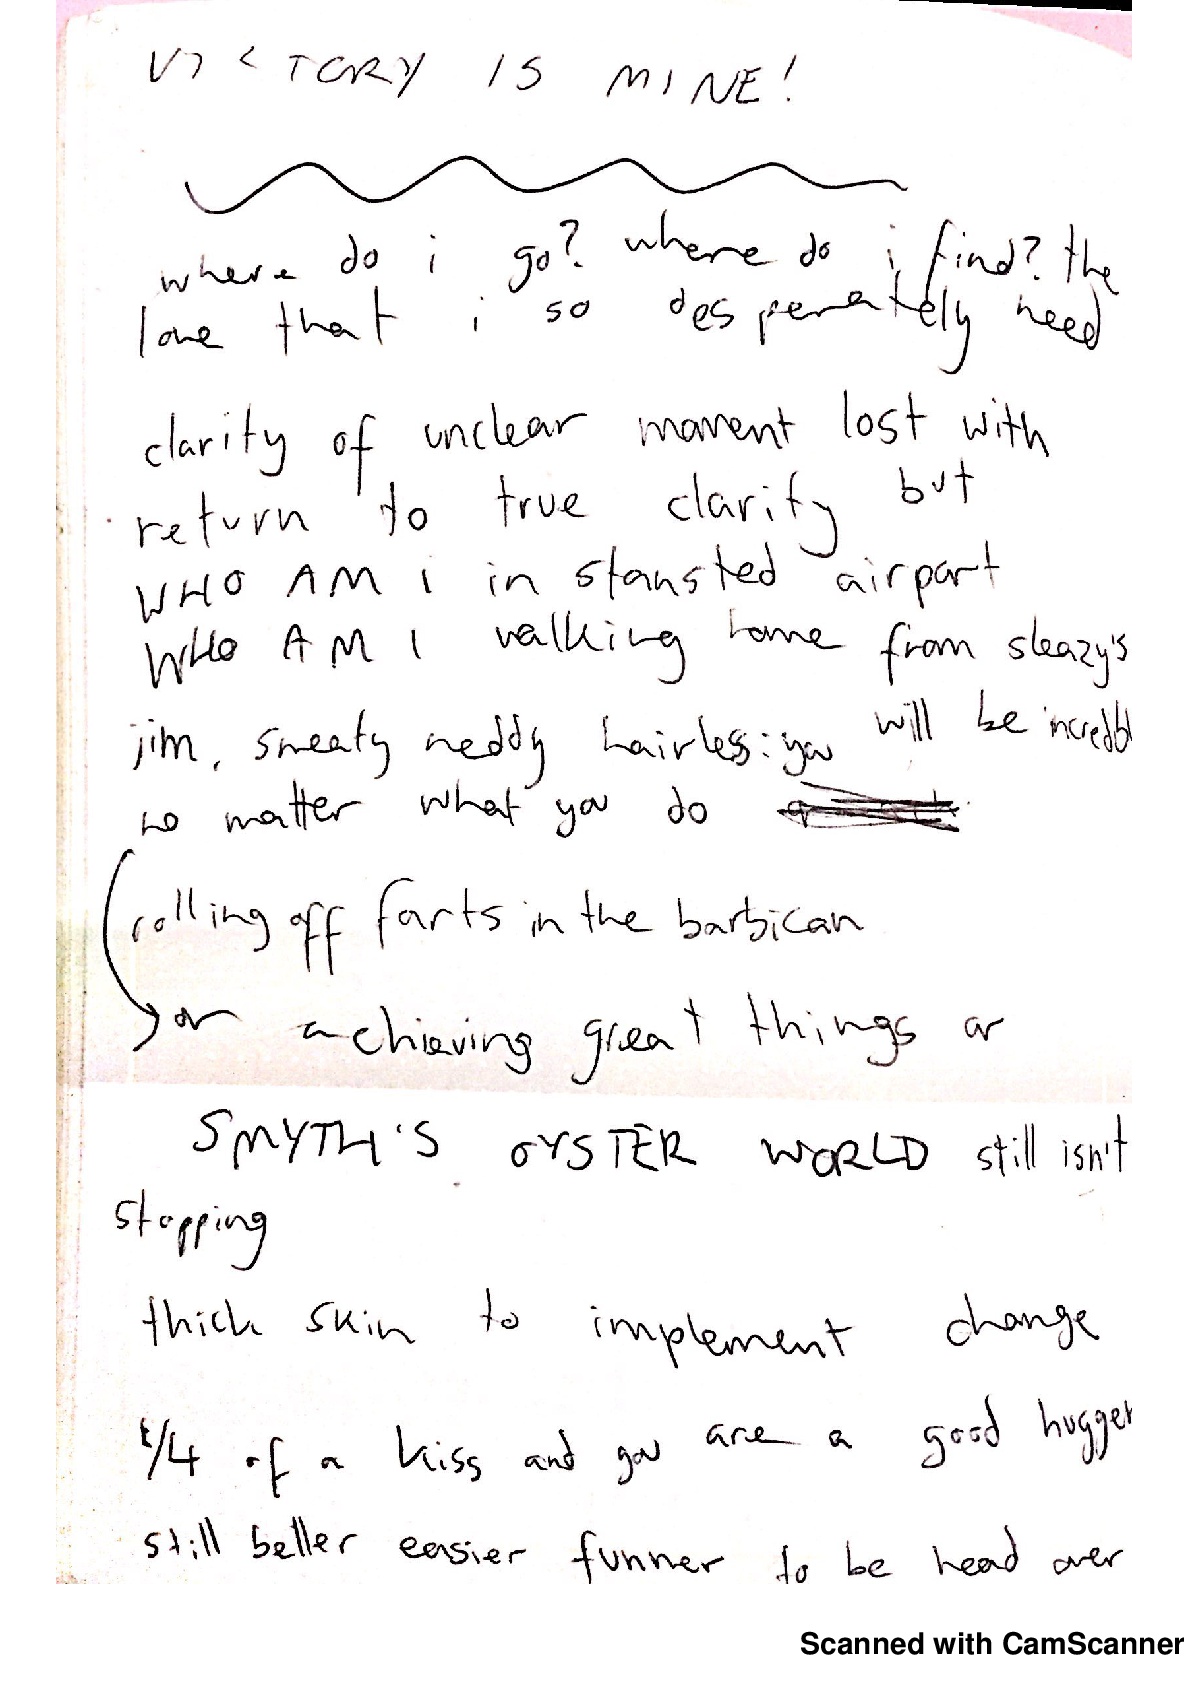 VICTORY IS MINE!
where do i go? where do i find? the
love that i so desperately need
clarity of unclear moment lost with
return to true clarity but
WHO AM I in stansted airport
WHO AM I walking home from sleazy's
jim, sweaty neddy hairless: you will be incredbl
no matter what you do
rolling off farts in the barbican
or achieving great things or
SMYTH'S OYSTER WORLD still isn't
stopping
thick skin to implement change
1/4 of a kiss and you are a good hugger
still better easier funner to be head over
Scanned with CamScanner